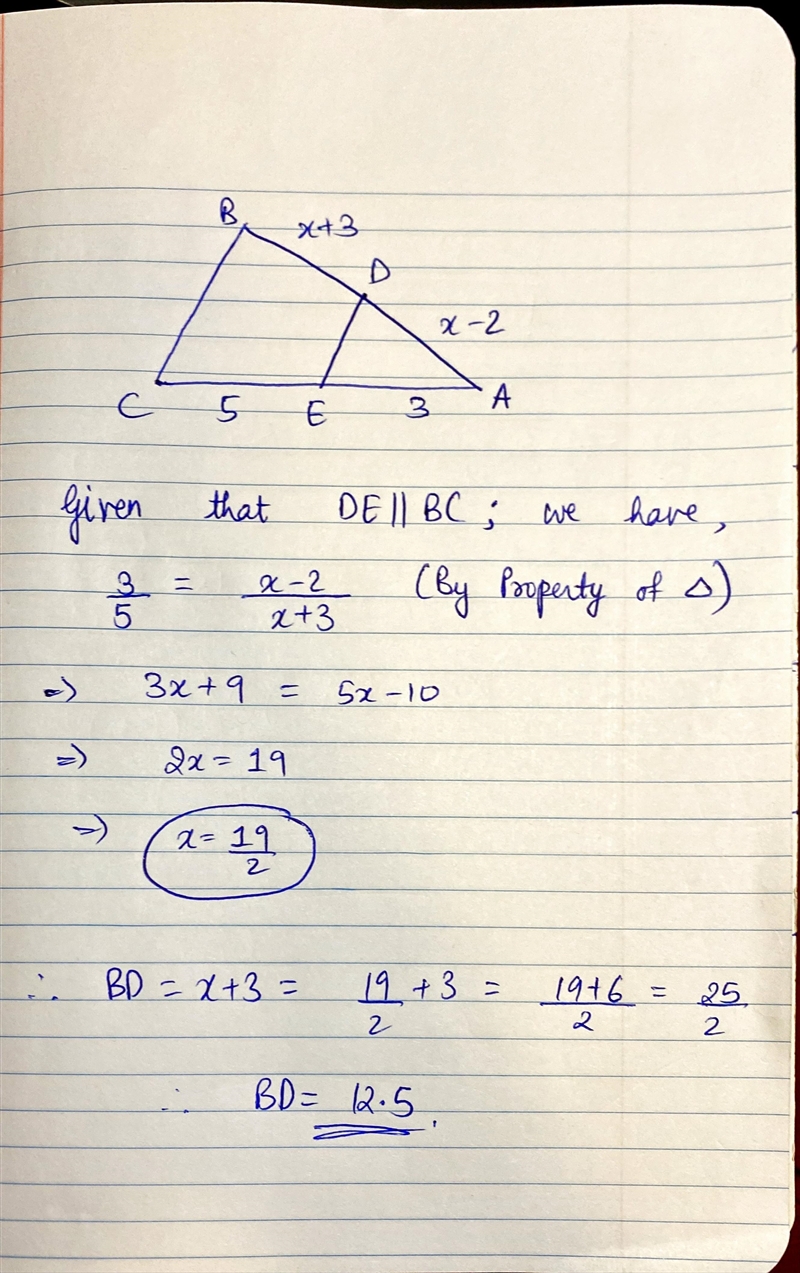 B x+3
D
x-2
C 5 E 3 A
Given that DE || BC ; we have,
3/5 = (x-2)/(x+3) (By Property of △)
=> 3x+9 = 5x-10
=> 2x = 19
=> x = 19/2
∴ BD = x+3 = 19/2 + 3 = (19+6)/2 = 25/2
∴ BD = 12.5.